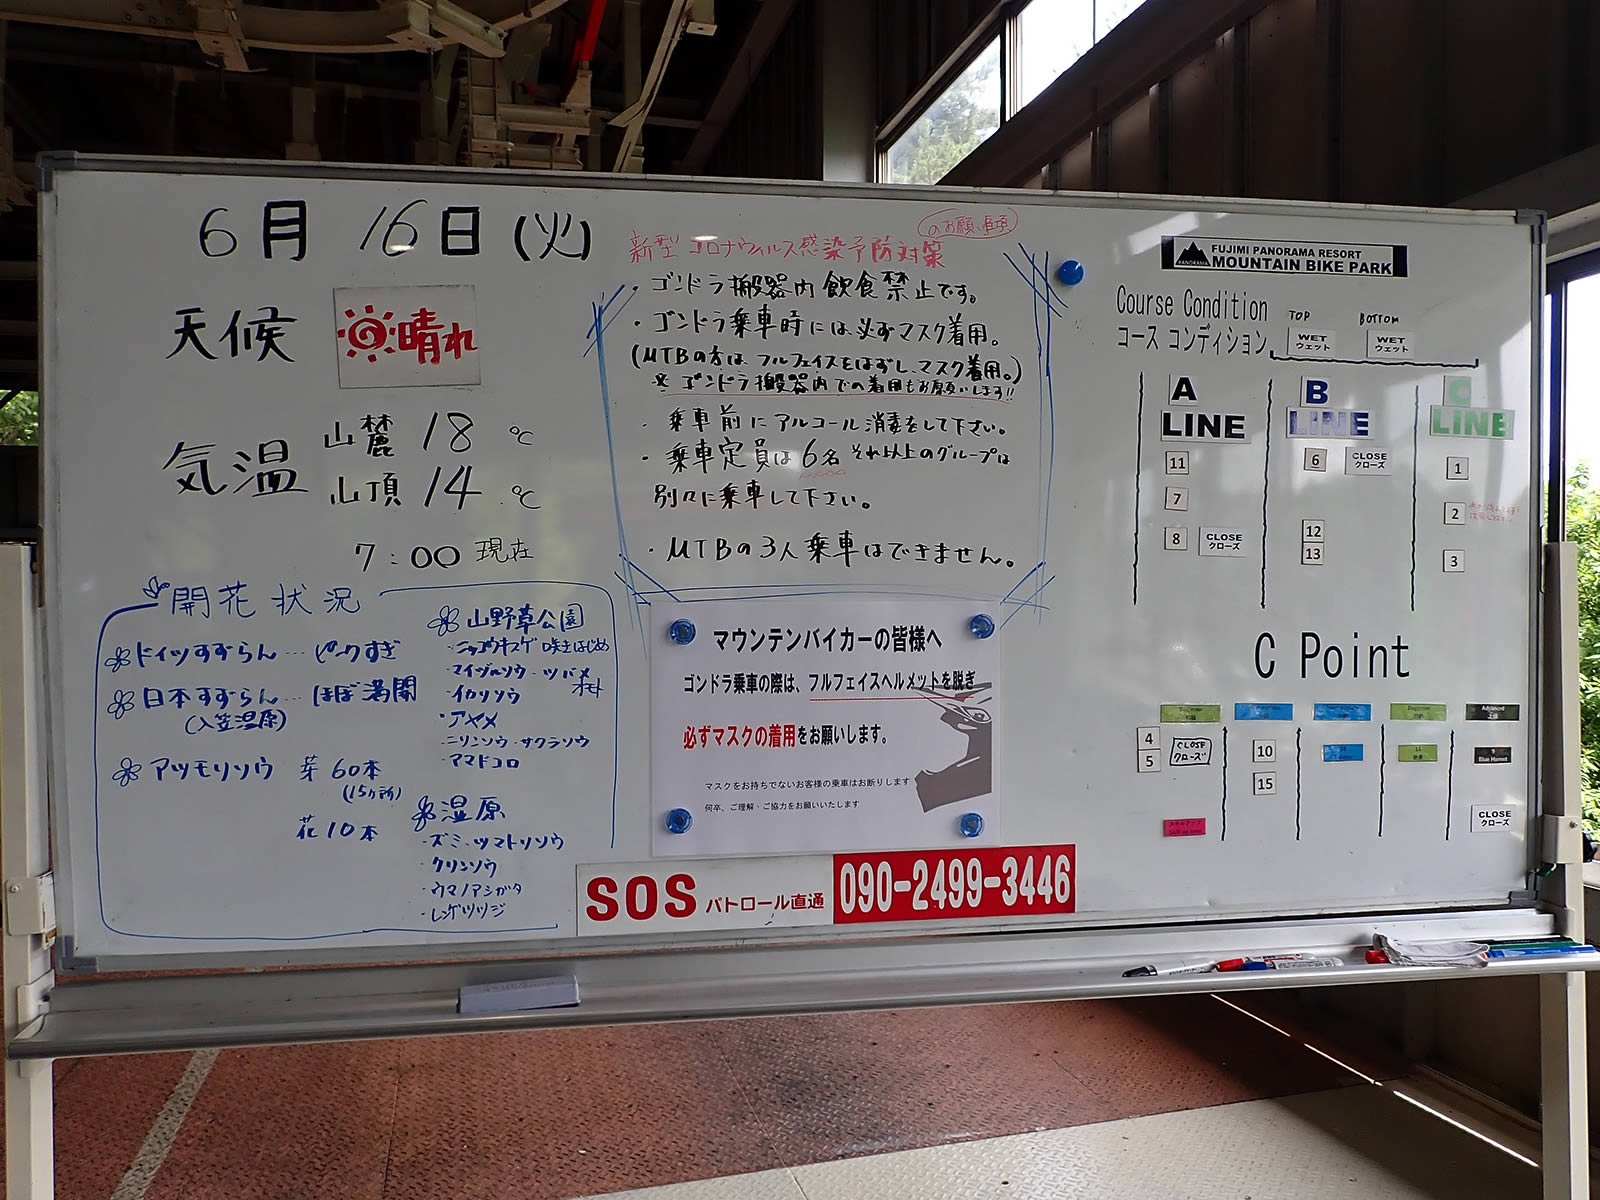 6月 16日(火)
天候 晴れ
気温 山麓 18 ℃
山頂 14 ℃
7:00 現在
開花状況
ドイツすずらん…ピークすぎ
日本すずらん…ほぼ満開
(入笠湿原)
アツモリソウ 芽60本
(15ヶ所)
花10本
山野草公園
・ニッコウキスゲ 咲きはじめ
・マイヅルソウ・ツバメ
オモト
・イカリソウ
・アヤメ
・ニリンソウ・サクラソウ
・アマドコロ
湿原
・ズミ・ツマトリソウ
・クリンソウ
・ウマノアシガタ
・レンゲツツジ
新型コロナウィルス感染予防対策
のお願い事項
・ゴンドラ搬器内飲食禁止です。
・ゴンドラ乗車時には必ずマスク着用。
(MTBの方はフルフェイスをはずし、マスク着用。)
※ゴンドラ搬器内での着用もお願いします!!
・乗車前にアルコール消毒をして下さい。
・乗車定員は6名 それ以上のグループは
別々に乗車して下さい。
・MTBの3人乗車はできません。
マウンテンバイカーの皆様へ
ゴンドラ乗車の際は、フルフェイスヘルメットを脱ぎ
必ずマスクの着用をお願いします。
マスクをお持ちでないお客様の乗車はお断りします
何卒、ご理解・ご協力をお願いいたします
SOS パトロール直通 090-2499-3446
PANORAMA
FUJIMI PANORAMA RESORT
MOUNTAIN BIKE PARK
Course Condition
コース コンディション
TOP
WET
ウェット
BOTTOM
WET
ウェット
A
LINE
11
7
8 CLOSE
クローズ
B
LINE
6 CLOSE
クローズ
12
13
C
LINE
1
2
3
C Point
Beginner
初級
Beginner
初級
Advanced
上級
4
5
CLOSE
クローズ
10
15
9
Blue Hornet
スキルアップ
Skill up area
CLOSE
クローズ